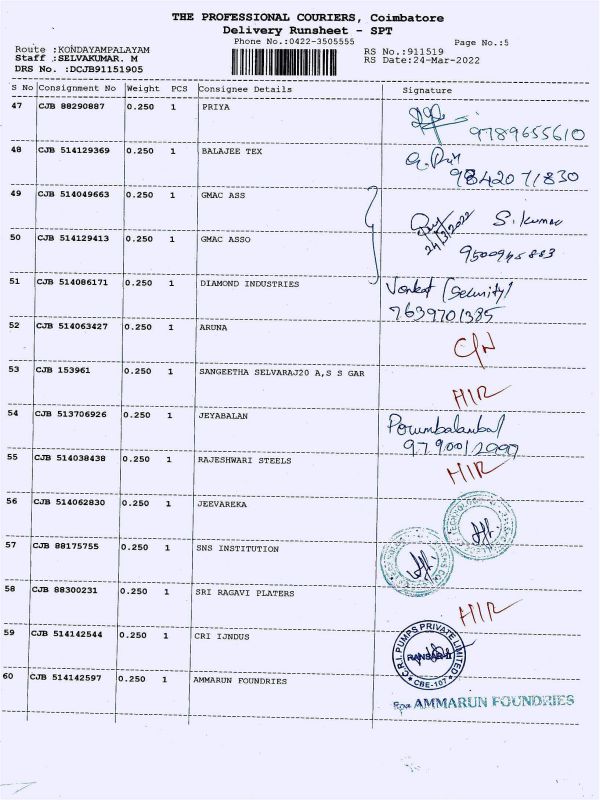 THE PROFESSIONAL COURIERS, Coimbatore
Delivery Runsheet - SPT
Phone No.:0422-3505555
Page No.:5
Route :KONDAYAMPALAYAM
RS No.:911519
Staff :SELVAKUMAR. M
RS Date:24-Mar-2022
DRS No. :DCJB91151905
S No Consignment No Weight PCS Consignee Details Signature
47 CJB 88290887 0.250 1 PRIYA
9789655610
48 CJB 514129369 0.250 1 BALAJEE TEX
9842071830
49 CJB 514049663 0.250 1 GMAC ASS
24/3/2022 S. Kumar
50 CJB 514129413 0.250 1 GMAC ASSO
51 CJB 514086171 0.250 1 DIAMOND INDUSTRIES
Venkat (Security)
7639701385
52 CJB 514063427 0.250 1 ARUNA
53 CJB 153961 0.250 1 SANGEETHA SELVARAJ20 A,S S GAR
54 CJB 513706926 0.250 1 JEYABALAN
55 CJB 514038438 0.250 1 RAJESHWARI STEELS
56 CJB 514062830 0.250 1 JEEVAREKA
57 CJB 88175755 0.250 1 SNS INSTITUTION
58 CJB 88300231 0.250 1 SRI RAGAVI PLATERS
59 CJB 514142544 0.250 1 CRI IJNDUS
C.R.I. PUMPS PRIVATE LIMITED
CBE-107
60 CJB 514142597 0.250 1 AMMARUN FOUNDRIES
AMMARUN FOUNDRIES